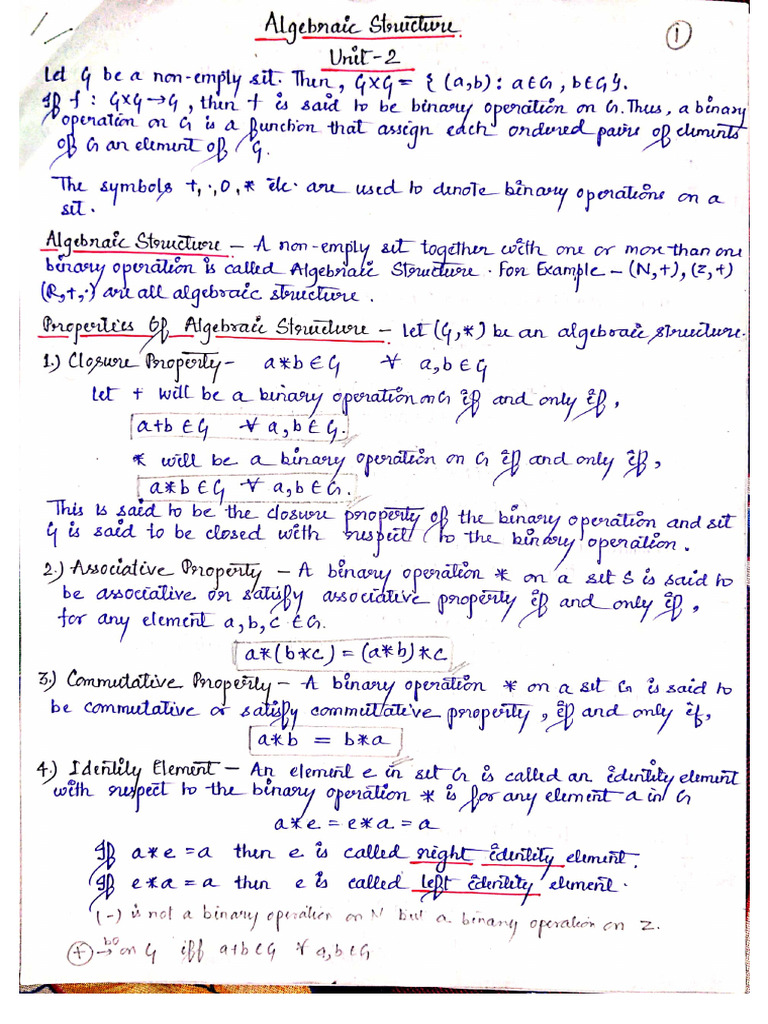 Algebraic Structure
①
Unit-2
Let G be a non-empty set. Then, G×G = { (a,b) : a∈G, b∈G }.
If f : G×G→G, then f is said to be binary operation on G. Thus, a binary
operation on G is a function that assign each ordered pairs of elements
of G an element of G.
The symbols +, ·, 0, * etc. are used to denote binary operations on a
set.
Algebraic Structure – A non-empty set together with one or more than one
binary operation is called Algebraic Structure. For Example – (N,+), (Z,+)
(R,+,·) are all algebraic structure.
Properties Of Algebraic Structure – Let (G,*) be an algebraic structure.
1.) Closure Property – a*b ∈ G ∀ a,b ∈ G
Let + will be a binary operation on G if and only if,
a+b ∈ G ∀ a,b ∈ G.
* will be a binary operation on G if and only if,
a*b ∈ G ∀ a,b ∈ G.
This is said to be the closure property of the binary operation and set
G is said to be closed with respect to the binary operation.
2.) Associative Property – A binary operation * on a set S is said to
be associative or satisfy associative property if and only if,
for any element a,b,c ∈ G.
a*(b*c) = (a*b)*c
3.) Commutative Property – A binary operation * on a set G is said to
be commutative or satisfy commutative property, if and only if,
a*b = b*a
4.) Identity Element – An element e in set G is called an identity element
with respect to the binary operation * is for any element a in G
a*e = e*a = a
If a*e = a then e is called right identity element.
If e*a = a then e is called left identity element.
(-) is not a binary operation on N but a binary operation on Z.
(+) →bo on G iff a+b∈G ∀ a,b∈G